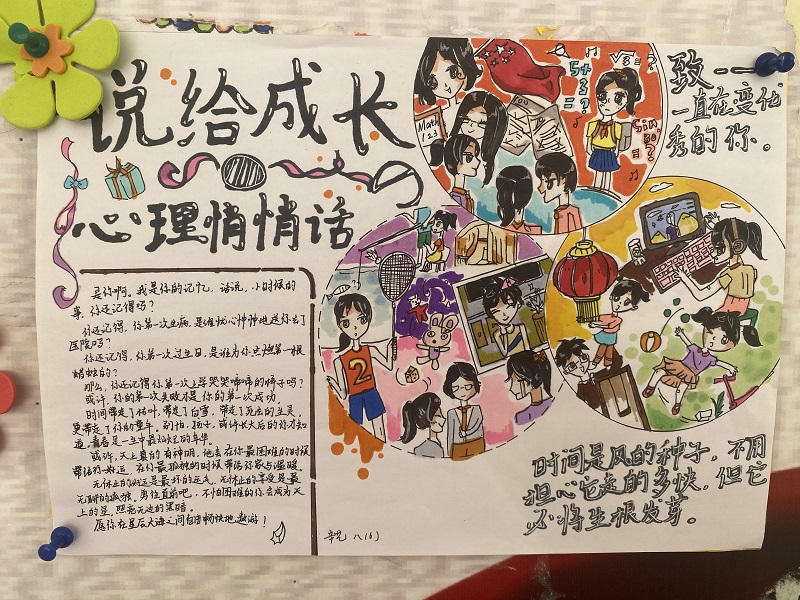 说给成长
心理悄悄话
致——
一直在变优
秀的你。
Math
123
5+
3
=?
是你啊。我是你的记忆，话说，小时候的
事，你还记得吗？
你还记得，你第一次生病，是谁忧心忡忡地送你去了
医院吗？
你还记得，你第一次过生日，是谁为你点燃第一根
蜡烛的？
那么，你还记得你第一次上学哭哭啼啼的样子吗？
或许，你的第一次失败才是你的第一次成功。
时间带走了树叶，带走了白雪，带走了死去的生灵，
更带走了你的童年。别怕，孩子，或许长大后的你才知
道，青春是一生中最灿烂的年华。
或许，天上真的有神明，他会在你最困难的时候
带给你好运，在你最孤独的时候带给你家与温暖。
无休止的好运是最坏的运气，无休止的享受是最
无聊的孤独，勇往直前吧，不怕困难的你会成为天
上的星，照亮无边的黑暗。
愿你在星辰大海之间自由畅快地遨游！
2
时间是风的种子，不用
担心它走的多快，但它
必将生根发芽。
八(6)